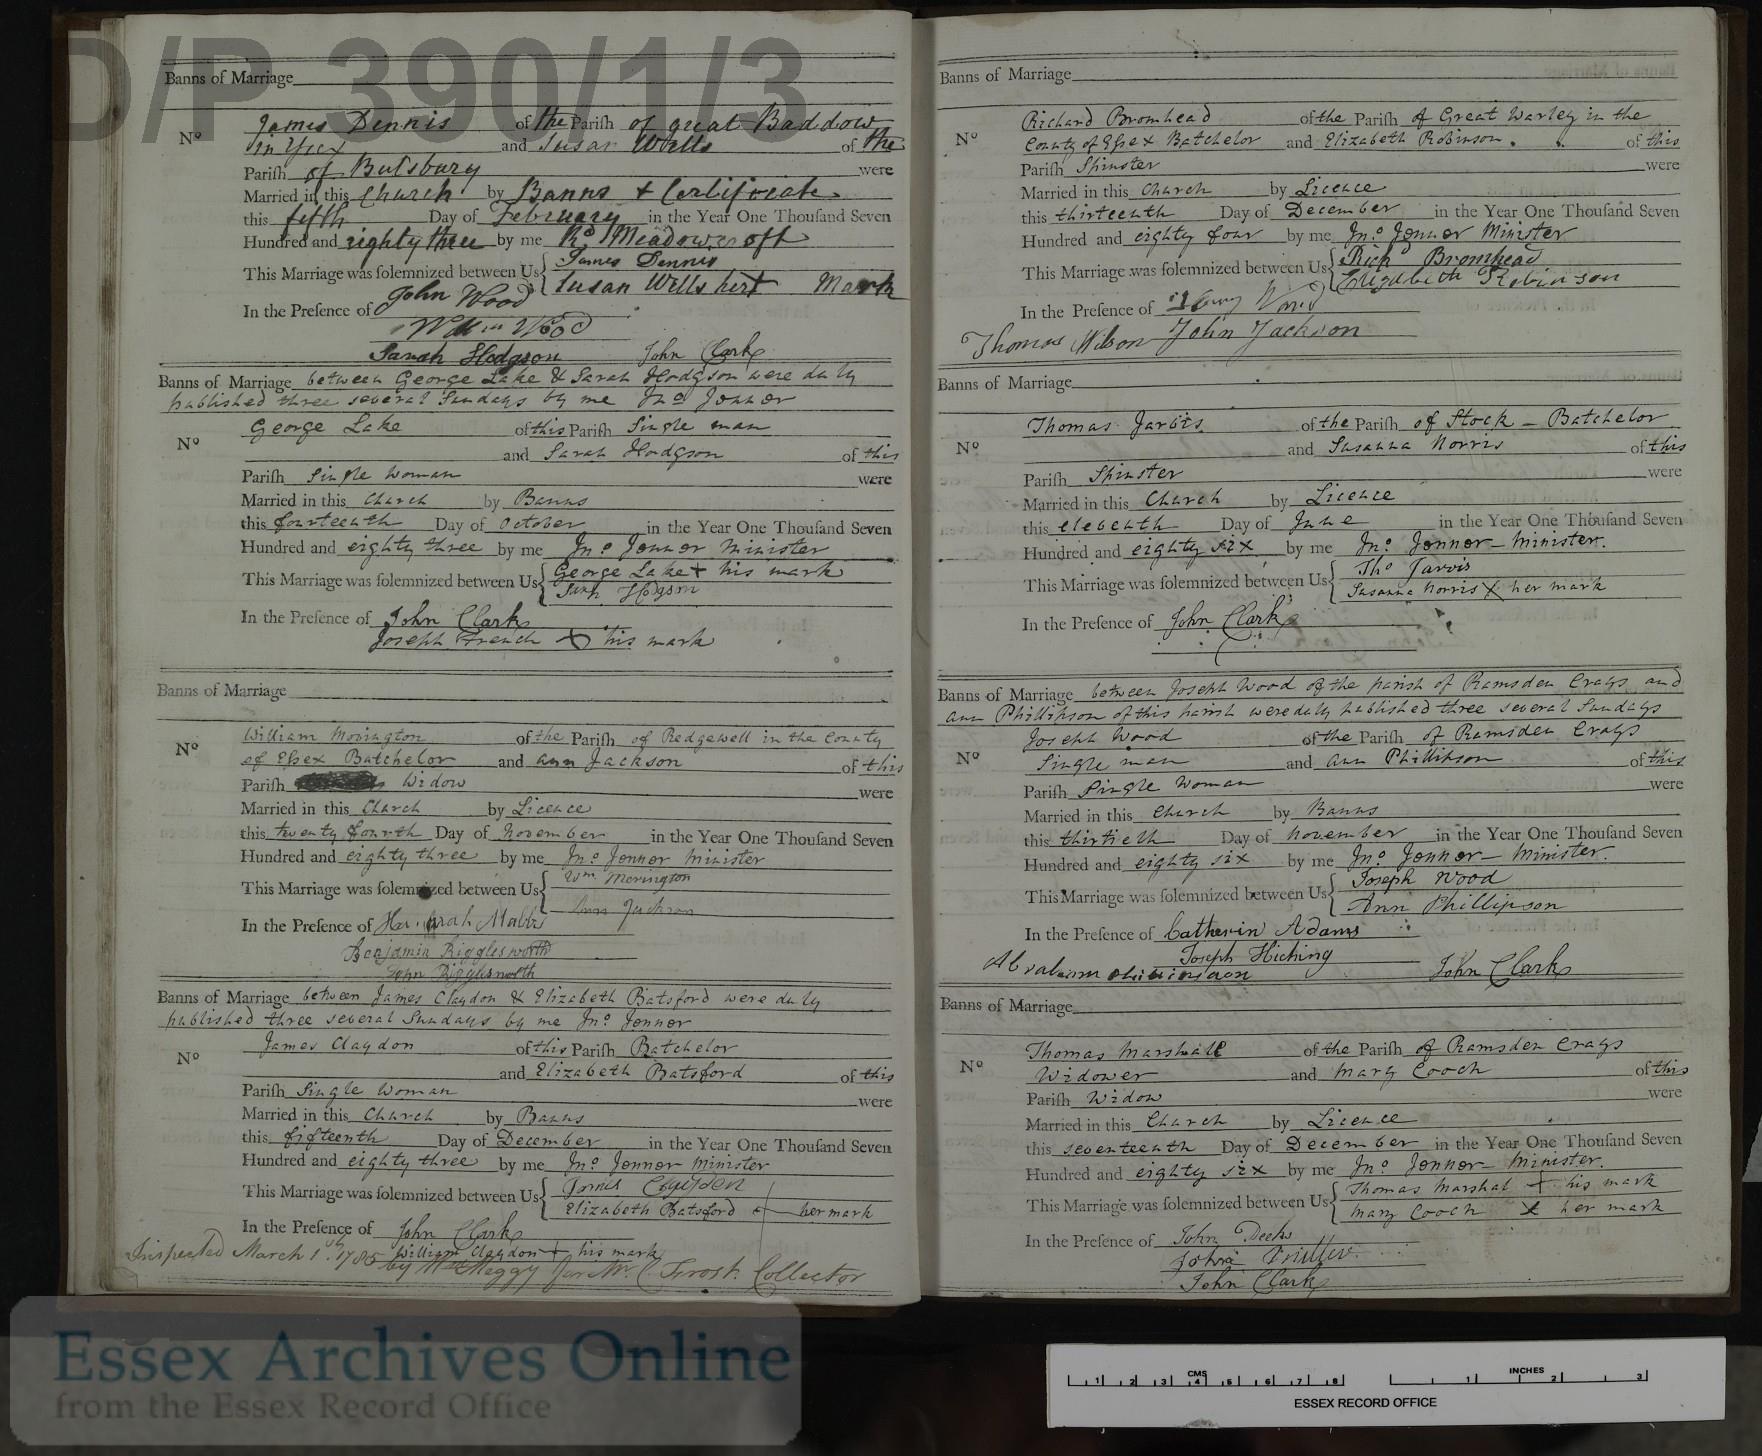 D/P 390/1/3
Banns of Marriage
No James Dennis of the Parish of great Baddow
and Susan Wills of the
Parish of Butsbury were
Married in this Church by Banns + Certificate
this fifth Day of February in the Year One Thousand Seven
Hundred and eighty three by me Rd Meadowcroft
This Marriage was solemnized between Us James Dennis
Susan Wills her + Mark
In the Presence of John Wood
Wood
Sarah Hodgson John Clark
Banns of Marriage between George Lake & Sarah Hodgson were duly
published three several Sundays by me Jno Jenner
No George Lake of this Parish Single man
and Sarah Hodgson of this
Parish Single Woman were
Married in this Church by Banns
this fourteenth Day of October in the Year One Thousand Seven
Hundred and eighty three by me Jno Jenner Minister
This Marriage was solemnized between Us George Lake + his mark
Sarah Hodgson
In the Presence of John Clark
Joseph French + his mark
Banns of Marriage
No William Movington of the Parish of Redgewell in the County
of Essex Batchelor and ann Jackson of this
Parish Widow were
Married in this Church by Licence
this twenty fourth Day of November in the Year One Thousand Seven
Hundred and eighty three by me Jno Jenner Minister
This Marriage was solemnized between Us Wm Movington
Ann Jackson
In the Presence of
Benjamin Rigglesworth
John Rigglesworth
Banns of Marriage between James Claydon & Elizabeth Batsford were duly
published three several Sundays by me Jno Jenner
No James Claydon of this Parish Batchelor
and Elizabeth Batsford of this
Parish Single Woman were
Married in this Church by Banns
this fifteenth Day of December in the Year One Thousand Seven
Hundred and eighty three by me Jno Jenner Minister
This Marriage was solemnized between Us
Elizabeth Batsford + her mark
In the Presence of John Clark
William Claydon + his mark
Inspected March 1st 1785 by Wm Meggy for Mr C Frost Collector
Banns of Marriage
No Richard Bromhead of the Parish of Great Warley in the
County of Essex Batchelor and Elizabeth Robinson of this
Parish Spinster were
Married in this Church by Licence
this thirteenth Day of December in the Year One Thousand Seven
Hundred and eighty four by me Jno Jenner Minister
This Marriage was solemnized between Us Richd Bromhead
Elizabeth Robinson
In the Presence of
Thomas Wilson John Jackson
Banns of Marriage
No Thomas Jarvis of the Parish of Stock - Batchelor
and Susanna Norris of this
Parish Spinster were
Married in this Church by Licence
this eleventh Day of June in the Year One Thousand Seven
Hundred and eighty six by me Jno Jenner - Minister.
This Marriage was solemnized between Us Tho Jarvis
Susanna Norris X her mark
In the Presence of John Clark
Banns of Marriage between Joseph Wood of the parish of Ramsden Crays and
ann Phillipson of this parish were duly published three several Sundays
No Joseph Wood of the Parish of Ramsden Crays
Single man and ann Phillipson of this
Parish Single Woman were
Married in this Church by Banns
this thirtieth Day of November in the Year One Thousand Seven
Hundred and eighty six by me Jno Jenner - Minister.
This Marriage was solemnized between Us Joseph Wood
Ann Phillipson
In the Presence of Catherin Adams
Joseph Hiching
John Clark
Banns of Marriage
No Thomas Marshall of the Parish of Ramsden Crays
Widower and Mary Cooch of this
Parish Widow were
Married in this Church by Licence
this seventeenth Day of December in the Year One Thousand Seven
Hundred and eighty six by me Jno Jenner - Minister.
This Marriage was solemnized between Us Thomas Marshal + his mark
Mary Cooch X her mark
In the Presence of John Deeks
John Clark
Essex Archives Online
from the Essex Record Office
CMS 1 2 3 4 5 6 7 8
INCHES 1 2 3
ESSEX RECORD OFFICE